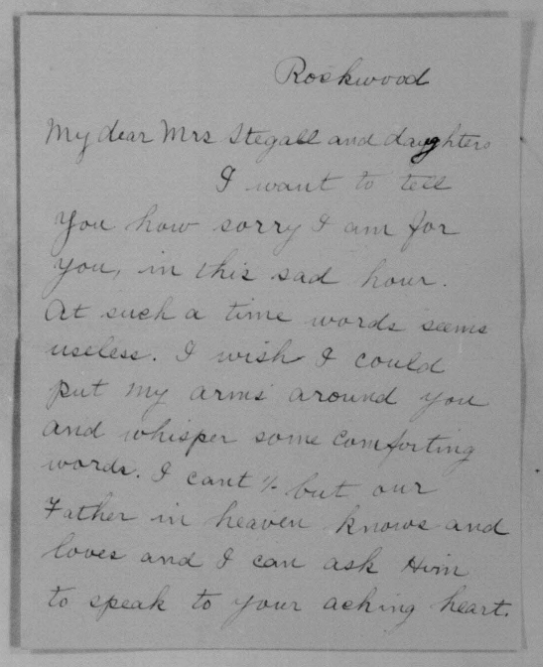 Rockwood
My dear Mrs Stegall and daughters
I want to tell
you how sorry I am for
you, in this sad hour.
At such a time words seems
useless. I wish I could
put my arms around you
and whisper some comforting
words. I cant - but our
Father in heaven knows and
loves and I can ask Him
to speak to your aching heart.